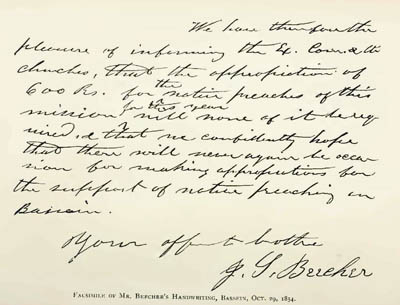 We have therefore the
pleasure of informing the Ex. Com. & the
churches, that the appropriation of
the
600 Rs. for native preachers of this
for this year
mission will none of it be req
uired, & that we confidently hope
that there will never again be occa
sion for making appropriations for
the support of native preaching in
Bassein.
Your affect brother
J. S. Beecher
FACSIMILE OF MR. BEECHER'S HANDWRITING, BASSEIN, OCT. 29, 1854.